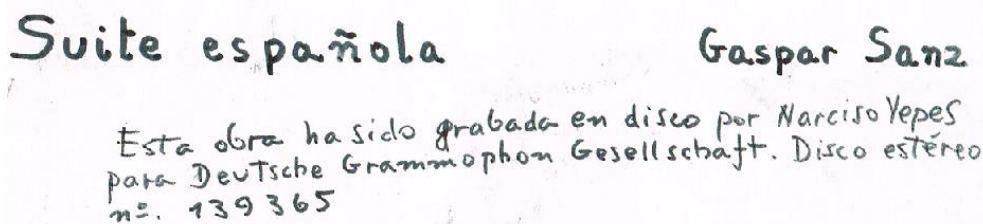 Suite española Gaspar Sanz
Esta obra ha sido grabada en disco por Narciso Yepes
para Deutsche Grammophon Gesellschaft. Disco estéreo
nº. 139365